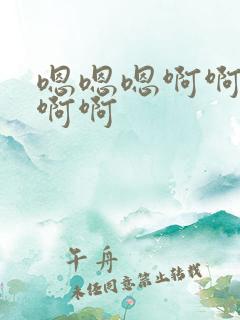 嗯嗯嗯啊啊
啊啊
午舟
未经同意禁止转载